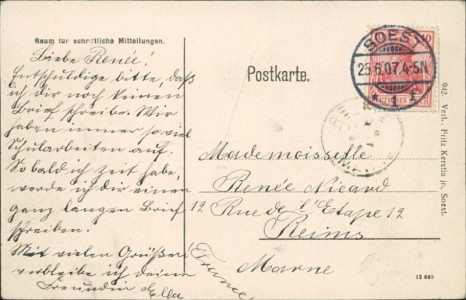 Raum für schriftliche Mitteilungen.
Liebe Renée!
Entschuldige bitte, daß
ich dir noch keinen
Brief schreibe. Wir
haben immer so viel
Schularbeiten auf.
Sobald ich zeit habe,
werde ich dir einen
ganz langen Brief
schreiben.
Mit vielen Grüßen
verbleibe ich deine
Freundin Ella
Postkarte.
SOEST
25.6.07.4-5N
* 1 z
10
Mademoiselle
Renée Nicard
12 Rue de l'Etape 12
Reims
Marne
(France)
942. Verl. Fritz Kerstin jr. Soest.